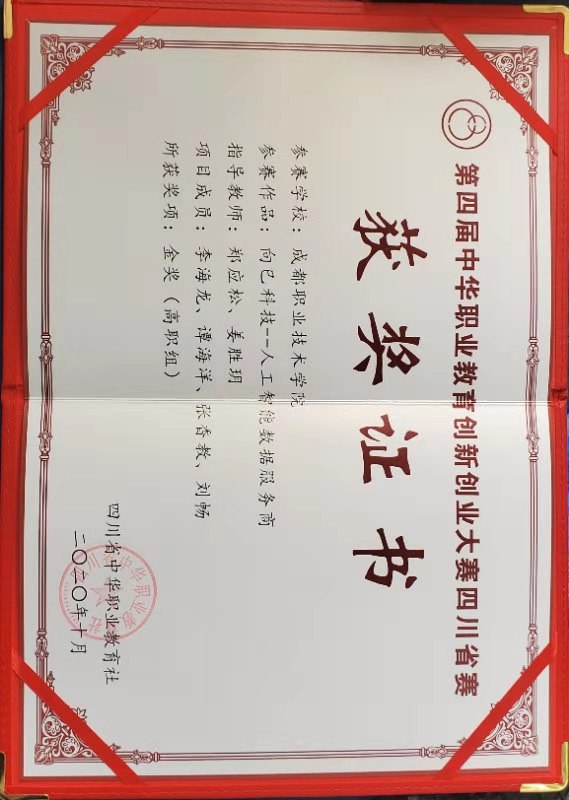 第四届中华职业教育创新创业大赛四川省赛
获奖证书
参赛学校：成都职业技术学院
参赛作品：向已科技--人工智能数据服务商
指导教师：郑应松、姜胜玥
项目成员：李海龙、谭海洋、张香教、刘畅
所获奖项：金奖（高职组）
四川省中华职业教育社
二〇二〇年十月